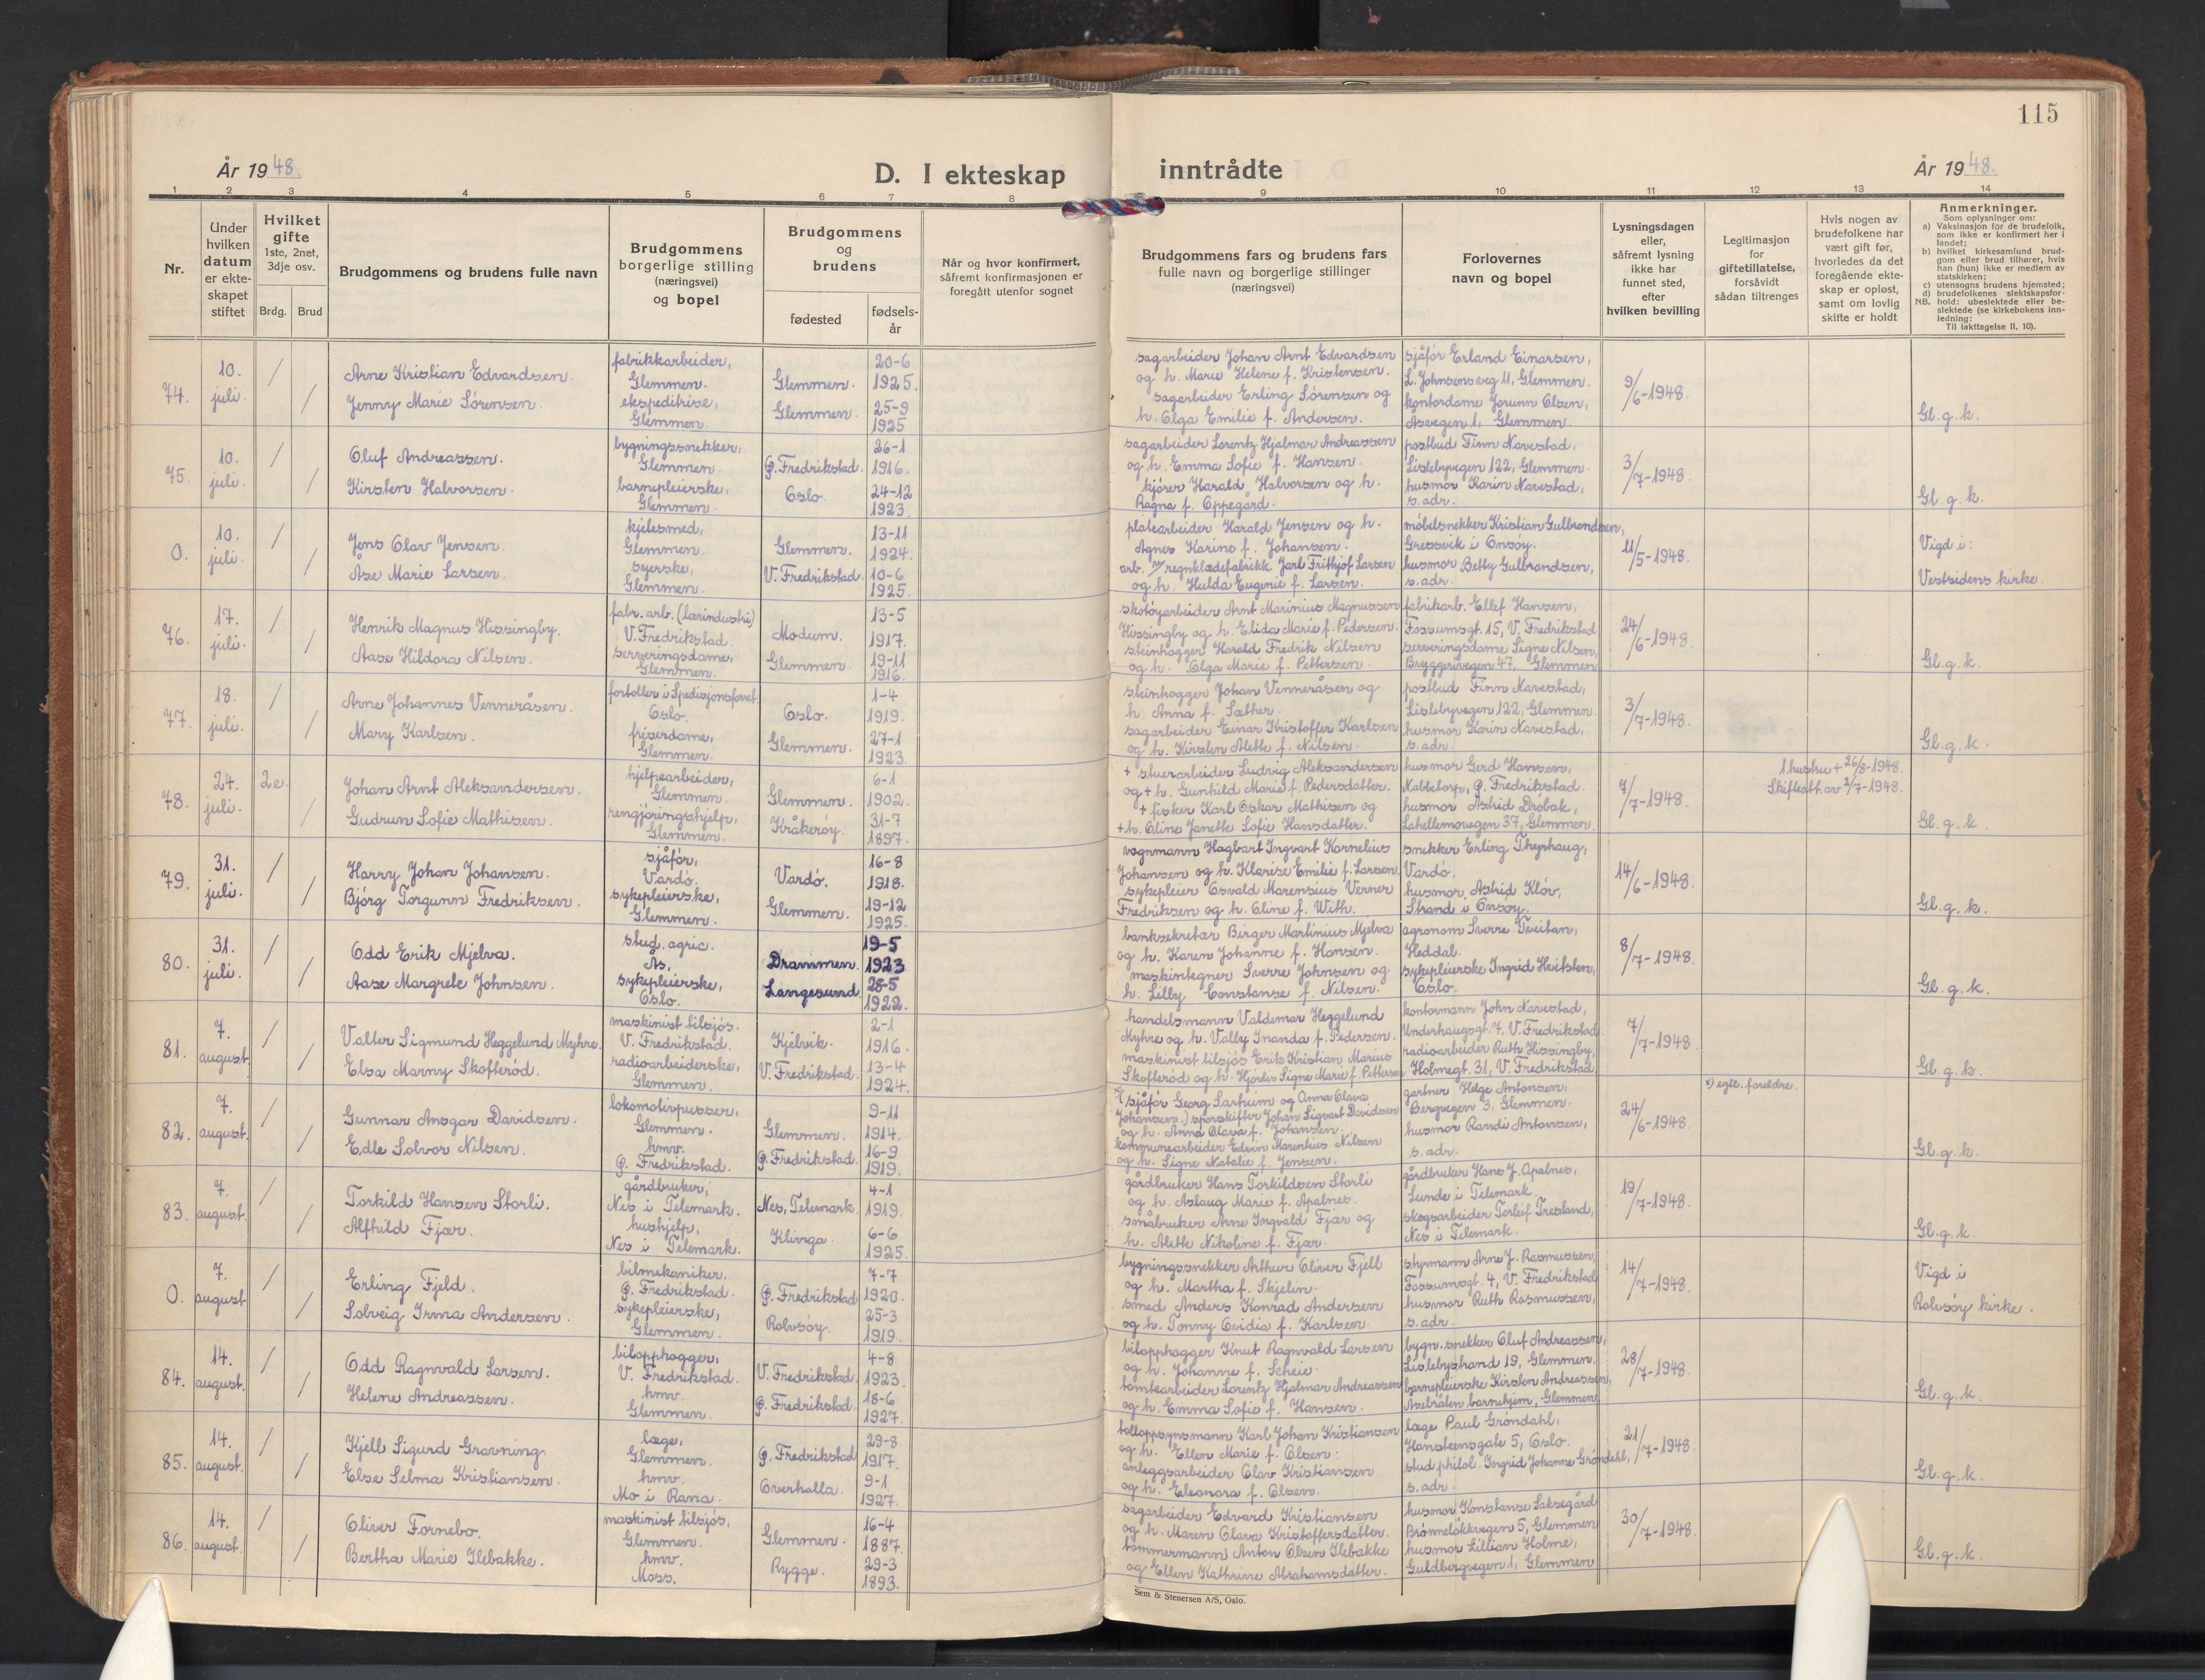 115
År 1948.
D. I ekteskap
inntrådte
År 1948.
1 2 3 4 5 6 7 8 9 10 11 12 13 14
Nr.
Under hvilken datum er ekte-skapet stiftet
Hvilket gifte
1ste, 2net, 3dje osv.
Brdg. Brud
Brudgommens og brudens fulle navn
Brudgommens borgerlige stilling (næringsvei) og bopel
Brudgommens og brudens
fødested
fødsels-år
Når og hvor konfirmert, såfremt konfirmasjonen er foregått utenfor sognet
Brudgommens fars og brudens fars fulle navn og borgerlige stillinger (næringsvei)
Forlovernes navn og bopel
Lysningsdagen eller, såfremt lysning ikke har funnet sted, efter hvilken bevilling
Legitimasjon for giftetillatelse, forsåvidt sådan tiltrenges
Hvis nogen av brudefolkene har vært gift før, hvorledes da det foregående ekte-skap er opløst, samt om lovlig skifte er holdt
Anmerkninger.
Som oplysninger om:
a) Vaksinasjon for de brudefolk, som ikke er konfirmert her i landet;
b) hvilket kirkesamfund brud-gom eller brud tilhører, hvis han (hun) ikke er medlem av statskirken;
c) utensogns brudens hjemsted;
d) brudefolkenes slektskapsfor-hold: ubeslektede eller be-slektede (se kirkebokens inn-ledning:
NB. Til iakttagelse II. 10).
74. 10. juli. / /
Arne Kristian Edvardsen.
Jenny Marie Sörensen.
fabrikkarbeider, Glemmen.
ekspeditrise, Glemmen.
Glemmen. 20-6 1925.
Glemmen. 25-9 1925
sagarbeider Johan Arnt Edvardsen
og h. Marie Helene f. Kristensen.
sagarbeider Erling Sörensen og
h. Olga Emilie f. Andersen.
sjåför Erland Einarsen,
L. Johnsensveg 11, Glemmen.
kontordame Jorunn Olsen,
Åsvegen 1, Glemmen.
9/6-1948.
Gl. g. k.
75. 10. juli. / /
Oluf Andreassen.
Kirsten Halvorsen.
bygningssnekker, Glemmen.
barnepleierske, Glemmen.
Ø. Fredrikstad. 26-1 1916.
Oslo. 24-12 1923.
sagarbeider Lorentz Hjalmar Andreassen
og h. Emma Sofie f. Hansen.
kjörer Harald Halvorsen og h.
Ragna f. Oppegård.
postbud Finn Navestad,
Lislebyvegen 122, Glemmen.
husmor Karin Navestad,
s. adr.
3/7-1948.
Gl. g. k.
0. 10. juli. / /
Jens Olav Jensen.
Åse Marie Larsen.
kjelesmed, Glemmen.
syerske, Glemmen.
Glemmen. 13-11 1924.
V. Fredrikstad. 10-6 1925.
platearbeider Harald Jensen og h.
Agnes Karine f. Johansen.
arb. v/ regnklædefabrikk Jarl Frithjof Larsen
og h. Hulda Eugenie f. Larsen.
möbelsnekker Kristian Gulbrandsen,
Gressvik i Onsöy.
husmor Betty Gulbrandsen,
s. adr.
11/5-1948.
Vigd i:
Vestsidens kirke.
76. 17. juli. / /
Henrik Magnus Hissingby.
Aase Hildora Nilsen.
fabr. arb. (lærindustri) V. Fredrikstad.
serveringsdame, Glemmen.
Modum. 13-5 1917.
Glemmen. 19-11 1916.
skotöyarbeider Arnt Marinius Magnussen
Hissingby og h. Elida Marie f. Pedersen.
steinhogger Harald Fredrik Nilsen
og h. Olga Marie f. Pettersen.
fabrikarb. Ellef Hansen,
Fossumsgt. 15, V. Fredrikstad
serveringsdame Signe Nilsen,
Bryggerivegen 47, Glemmen
24/6-1948.
Gl. g. k.
77. 18. juli. / /
Arne Johannes Venneråsen.
Mary Karlsen.
fortoller i Spedisjonsforret. Oslo.
friserdame, Glemmen.
Oslo. 1-4 1919.
Glemmen. 27-1 1923.
steinhogger Johan Venneråsen og
h. Anna f. Sæther.
sagarbeider Einar Kristoffer Karlsen
og h. Kirsten Alethe f. Nilsen.
postbud Finn Navestad,
Lislebyvegen 122, Glemmen.
husmor Karin Navestad,
s. adr.
3/7-1948.
Gl. g. k.
78. 24. juli. 2e. /
Johan Arnt Aleksandersen.
Gudrun Sofie Mathisen.
hjelpearbeider, Glemmen.
rengjöringshjelp, Glemmen.
Glemmen. 6-1 1902.
Kråkeröy. 31-7 1897.
+ stuerarbeider Ludvig Aleksandersen
og + h. Gunhild Marie f. Pedersdatter.
+ fisker Karl Oskar Mathisen og
+ h. Oline Janette Sofie Hansdatter.
husmor Gerd Hansen,
Nabbetorp, Ø. Fredrikstad.
husmor Astrid Dröbak,
Lahellemovegen 37, Glemmen.
7/7-1948.
1 hustru + 26/8-1948.
Skifteatt. av 2/7-1948.
Gl. g. k.
79. 31. juli. / /
Harry Johan Johansen.
Björg Torgunn Fredriksen.
sjåför, Vardö.
sykepleierske, Glemmen.
Vardö. 16-8 1918.
Glemmen. 19-12 1925.
vognmann Hagbart Ingvart Kornelius
Johansen og h. Klarise Emilie f. Larsen.
sykepleier Osvald Marensius Verner
Fredriksen og h. Oline f. With.
snekker Erling Thyrhaug,
Vardö.
husmor Astrid Klöv,
Strand i Onsöy.
14/6-1948.
Gl. g. k.
80. 31. juli. / /
Odd Erik Mjelva.
Aase Margrete Johnsen.
stud. agric. Ås.
sykepleierske, Oslo.
Drammen. 19-5 1923
Langesund. 28-5 1922.
banksekretær Birger Martinius Mjelva
og h. Karen Johanne f. Hansen.
maskintegner Sverre Johnsen og
h. Lilly Constanse f. Nilsen.
agronom Sverre Tveitan,
Heddal.
sykepleierske Ingrid Hvitsten,
Oslo.
8/7-1948.
Gl. g. k.
81. 7. august. / /
Valter Sigmund Heggelund Myhre.
Elsa Marny Skofteröd.
maskinist tilsjös. V. Fredrikstad.
radioarbeiderske, Glemmen.
Kjelvik. 2-1 1916.
V. Fredrikstad. 13-4 1924.
handelsmann Valdemar Heggelund
Myhre og h. Vally Inanda f. Pedersen.
maskinist tilsjös Erik Kristian Marius
Skofteröd og h. Hjördis Signe Marie f. Pettersen
kontormann John Navestad,
Underhaugsgt. 7. V. Fredrikstad.
radioarbeider Ruth Hissingby,
Holmegt. 31, V. Fredrikstad,
7/7-1948
Gl. g. k.
82. 7. august. / /
Gunnar Ansgar Davidsen.
Edle Solvor Nilsen.
lokomotivpusser, Glemmen.
hmv. Ø. Fredrikstad.
Glemmen. 9-11 1914.
Ø. Fredrikstad. 16-9 1919.
sjåför Georg Sarheim og Anna Olava
Johansen.) sporskifter Johan Sigvart Davidsen
og h. Anna Olava f. Johansen.
kommunearbeider Edvin Marentius Nilsen
og h. Signe Natalie f. Jensen.
gartner Helge Antonsen,
Bergvegen 3, Glemmen.
husmor Randi Antonsen,
s. adr.
24/6-1948.
x) egtl. foreldre.
Gl. g. k.
83. 7. august. / /
Torkild Hansen Storli.
Alfhild Fjær.
gårdbruker, Nes i Telemark.
hushjelp, Nes i Telemark.
Nes, Telemark. 4-1 1919.
Klinga. 6-6 1925.
gårdbruker Hans Torkildsen Storli
og h. Aslaug Marie f. Apalnes.
småbruker Arne Ingvald Fjær og
h. Aleth Nikoline f. Fjær.
gårdbruker Hans J. Apalnes,
Lunde i Telemark.
skogsarbeider Torleif Tresland,
Nes i Telemark.
19/7-1948.
Gl. g. k.
0. 7. august / /
Erling Fjeld.
Solveig Irma Andersen.
bilmekaniker, Ø. Fredrikstad.
sykepleierske, Glemmen.
Ø. Fredrikstad 7-7 1920.
Rolvsöy. 25-3 1919.
bygningssnekker Arthur Oliver Fjell
og h. Martha f. Skjelin.
smed Anders Konrad Andersen
og h. Tonny Ovidia f. Karlsen.
styrmann Arne J. Rasmussen,
Fossumsgt. 4, V. Fredrikstad
husmor Ruth Rasmussen,
s. adr.
14/7-1948.
Vigd i
Rolvsöy kirke.
84. 14. august. / /
Odd Ragnvald Larsen.
Helene Andreassen.
bilopphogger, V. Fredrikstad.
hmv. Glemmen.
V. Fredrikstad. 4-8 1923.
Ø. Fredrikstad. 18-6 1927.
bilopphogger Knut Ragnvald Larsen
og h. Johanne f. Scheie.
tomtearbeider Lorentz Hjalmar Andreassen
og h. Emma Sofie f. Hansen.
bygn. snekker Oluf Andreassen,
Lislebystrand 19, Glemmen.
barnepleierske Kirsten Andreassen,
barnehjem, Glemmen
28/7-1948.
Gl. g. k.
85. 14. august. / /
Kjell Sigurd Gravning.
Else Selma Kristiansen.
læge, Glemmen.
hmv. Mo i Rana.
Ø. Fredrikstad 29-8 1917.
Overhalla. 9-1 1927.
tolloppsynsmann Karl Johan Kristiansen
og h. Ellen Marie f. Olsen.
anleggsarbeider Olav Kristiansen
og h. Eleonora f. Olsen.
læge Paul Gröndahl,
Hansteensgate 5, Oslo.
stud. philol. Ingrid Johanne Gröndahl,
s. adr.
21/7-1948.
Gl. g. k.
86. 14. august. / /
Oliver Fornebo.
Bertha Marie Ilebakke.
maskinist tilsjös, Glemmen.
hmv. Moss.
Glemmen. 16-4 1887.
Rygge. 29-3 1893.
sagarbeider Edvard Kristiansen
og h. Maren Olava Kristoffersdatter.
tömmermann Anton Olsen Ilebakke
og Ellen Kathrine Abrahamsdatter.
husmor Konstanse Saksegård
Brönnelökkvegen 5, Glemmen
husmor Lillian Holme,
Guldbergvegen 1, Glemmen
30/7-1948.
Gl. g. k.
Sem & Stenersen A/S, Oslo.